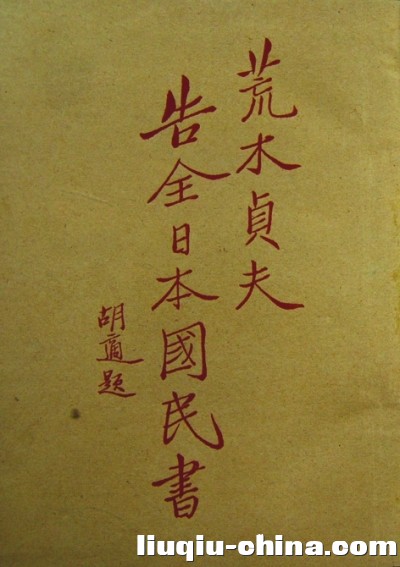 荒木貞夫
告全日本國民書
胡適題
liuqiu-china.com